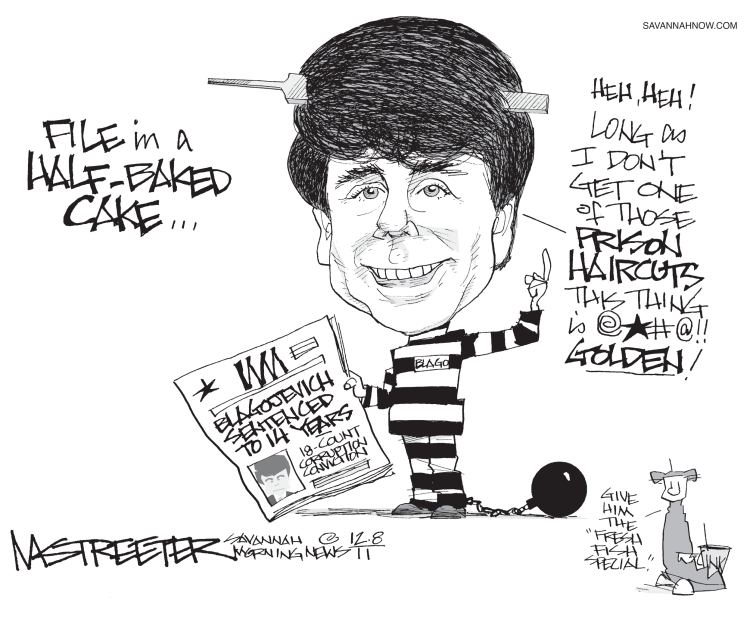 SAVANNAHNOW.COM
FILE in a
HALF-BAKED
CAKE...
HEH, HEH!
LONG as
I DON'T
GET ONE
of THOSE
PRISON
HAIRCUTS
THIS THING
is @★#@!!
GOLDEN!
BLAGO
BLAGOJEVICH
SENTENCED
TO 14 YEARS
18-COUNT
CORRUPTION
CONVICTION
GIVE
HIM
THE
"FRESH
FISH
SPECIAL."
MASTREETER
SAVANNAH
MORNING NEWS
© 12.8
11